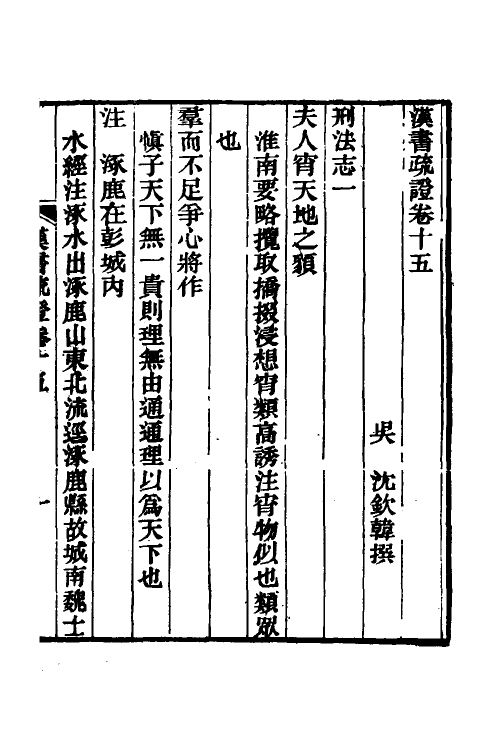 漢書疏證卷十五
吳　沈欽韓撰
刑法志一
夫人宵天地之䫉
淮南要略攬取撟掇浸想宵類高誘注宵物似也類眾
也
羣而不足爭心將作
愼子天下無一貴則理無由通通理以爲天下也
注　涿鹿在彭城內
水經注涿水出涿鹿山東北流逕涿鹿縣故城南魏土
漢書疏證卷十五　一